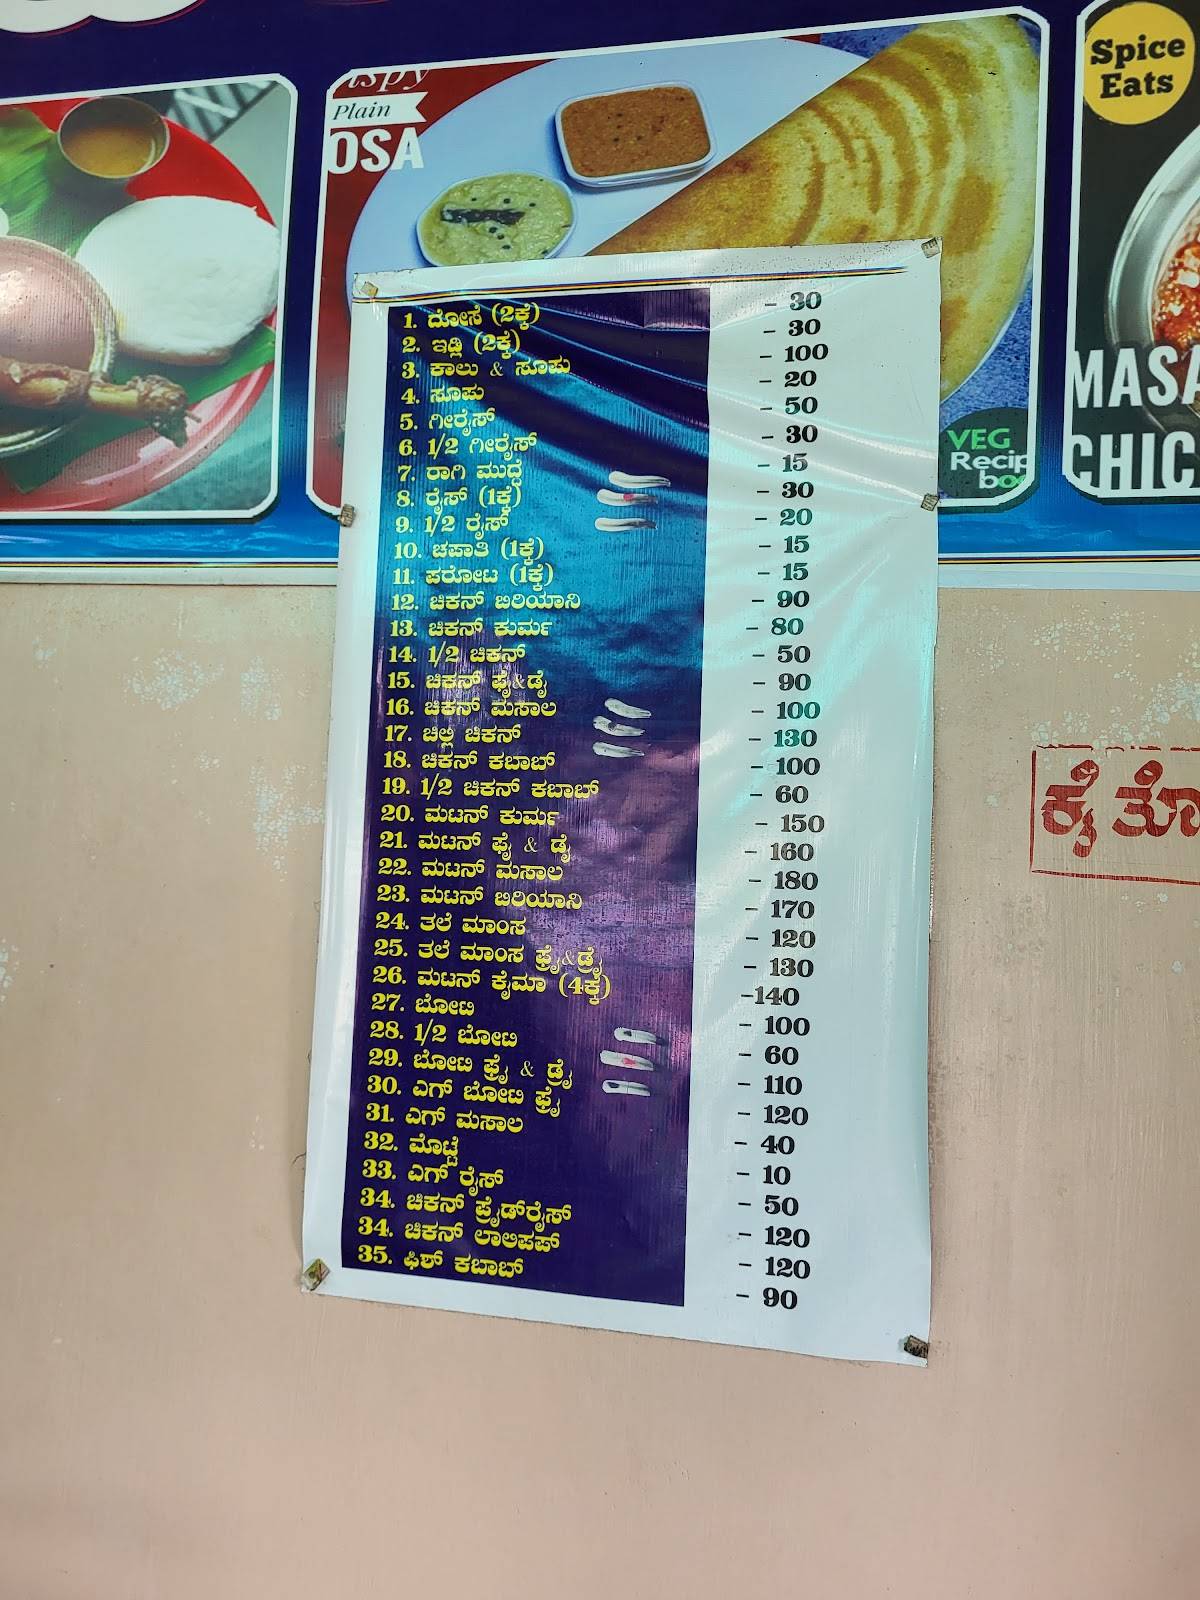 ispy
Plain
OSA
Spice
Eats
VEG
Recip
boo
MASA
CHIC
1. ದೋಸೆ (2ಕ್ಕೆ) - 30
2. ಇಡ್ಲಿ (2ಕ್ಕೆ) - 30
3. ಕಾಲು & ಸೂಪು - 100
4. ಸೂಪು - 20
5. ಗೀರೈಸ್ - 50
6. 1/2 ಗೀರೈಸ್ - 30
7. ರಾಗಿ ಮುದ್ದೆ - 15
8. ರೈಸ್ (1ಕ್ಕೆ) - 30
9. 1/2 ರೈಸ್ - 20
10. ಚಪಾತಿ (1ಕ್ಕೆ) - 15
11. ಪರೋಟ (1ಕ್ಕೆ) - 15
12. ಚಿಕನ್ ಬಿರಿಯಾನಿ - 90
13. ಚಿಕನ್ ಕುರ್ಮ - 80
14. 1/2 ಚಿಕನ್ - 50
15. ಚಿಕನ್ ಫೈ&ಡೈ - 90
16. ಚಿಕನ್ ಮಸಾಲ - 100
17. ಚಿಲ್ಲಿ ಚಿಕನ್ - 130
18. ಚಿಕನ್ ಕಬಾಬ್ - 100
19. 1/2 ಚಿಕನ್ ಕಬಾಬ್ - 60
20. ಮಟನ್ ಕುರ್ಮ - 150
21. ಮಟನ್ ಫೈ & ಡೈ - 160
22. ಮಟನ್ ಮಸಾಲ - 180
23. ಮಟನ್ ಬಿರಿಯಾನಿ - 170
24. ತಲೆ ಮಾಂಸ - 120
25. ತಲೆ ಮಾಂಸ ಫ್ರೈ&ಡ್ರೈ - 130
26. ಮಟನ್ ಕೈಮಾ (4ಕ್ಕೆ) -140
27. ಬೋಟಿ - 100
28. 1/2 ಬೋಟಿ - 60
29. ಬೋಟಿ ಫ್ರೈ & ಡ್ರೈ - 110
30. ಎಗ್ ಬೋಟಿ ಫ್ರೈ - 120
31. ಎಗ್ ಮಸಾಲ - 40
32. ಮೊಟ್ಟೆ - 10
33. ಎಗ್ ರೈಸ್ - 50
34. ಚಿಕನ್ ಫ್ರೈಡ್‌ರೈಸ್ - 120
34. ಚಿಕನ್ ಲಾಲಿಪಪ್ - 120
35. ಫಿಶ್ ಕಬಾಬ್ - 90
ಕೈ ತೊ